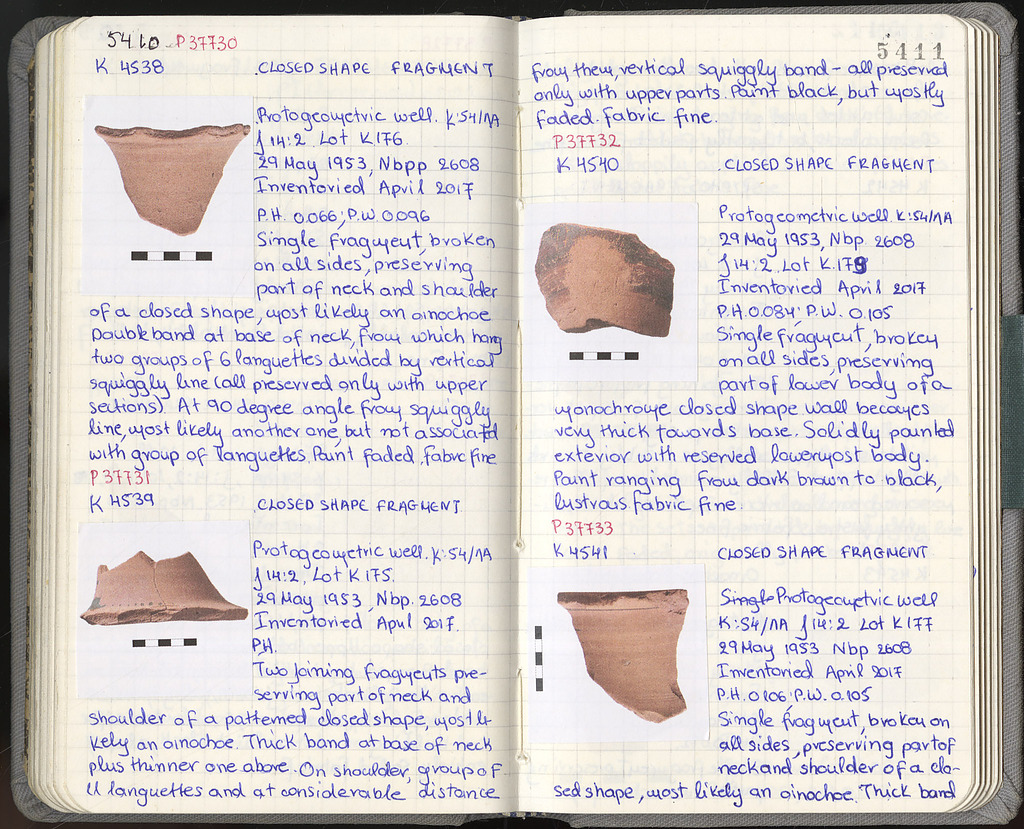 5410 P37730
K 4538 CLOSED SHAPE FRAGMENT
Protogeometric well. K:54/1A
J 14:2 Lot K176.
29 May 1953, Nbpp 2608
Inventoried April 2017
P.H. 0.066; P.W. 0.096
Single fragment, broken
on all sides, preserving
part of neck and shoulder
of a closed shape, most likely an oinochoe
Double band at base of neck, from which hang
two groups of 6 languettes divided by vertical
squiggly line (all preserved only with upper
sections) At 90 degree angle from squiggly
line, most likely another one, but not associated
with group of languettes. Paint faded, Fabric fine
P37731
K 4539 CLOSED SHAPE FRAGMENT.
Protogeometric well. K:54/1A
J 14:2, Lot K175.
29 May 1953, Nbp. 2608
Inventoried April 2017.
P.H.
Two joining fragments pre-
serving part of neck and
shoulder of a patterned closed shape, most li-
kely an oinochoe. Thick band at base of neck
plus thinner one above. On shoulder, group of
11 languettes and at considerable distance
5411
from them, vertical squiggly band - all preserved
only with upper parts. Paint black, but mostly
faded. Fabric fine.
P37732
K 4540 CLOSED SHAPE FRAGMENT
Protogeometric well. K:54/1A
29 May 1953, Nbp. 2608
J 14:2 Lot K.178
Inventoried April 2017
P.H. 0.084; P.W. 0.105
Single fragment, broken
on all sides, preserving
part of lower body of a
monochrome closed shape wall becomes
very thick towards base. Solidly painted
exterior with reserved lowermost body.
Paint ranging from dark brown to black,
lustrous fabric fine.
P37733
K 4541 CLOSED SHAPE FRAGMENT
Single Protogeometric well
K:54/1A J 14:2 Lot K177
29 May 1953 Nbp 2608
Inventoried April 2017
P.H. 0.106; P.W. 0.105
Single fragment, broken on
all sides, preserving part of
neck and shoulder of a clo-
sed shape, most likely an oinochoe. Thick band